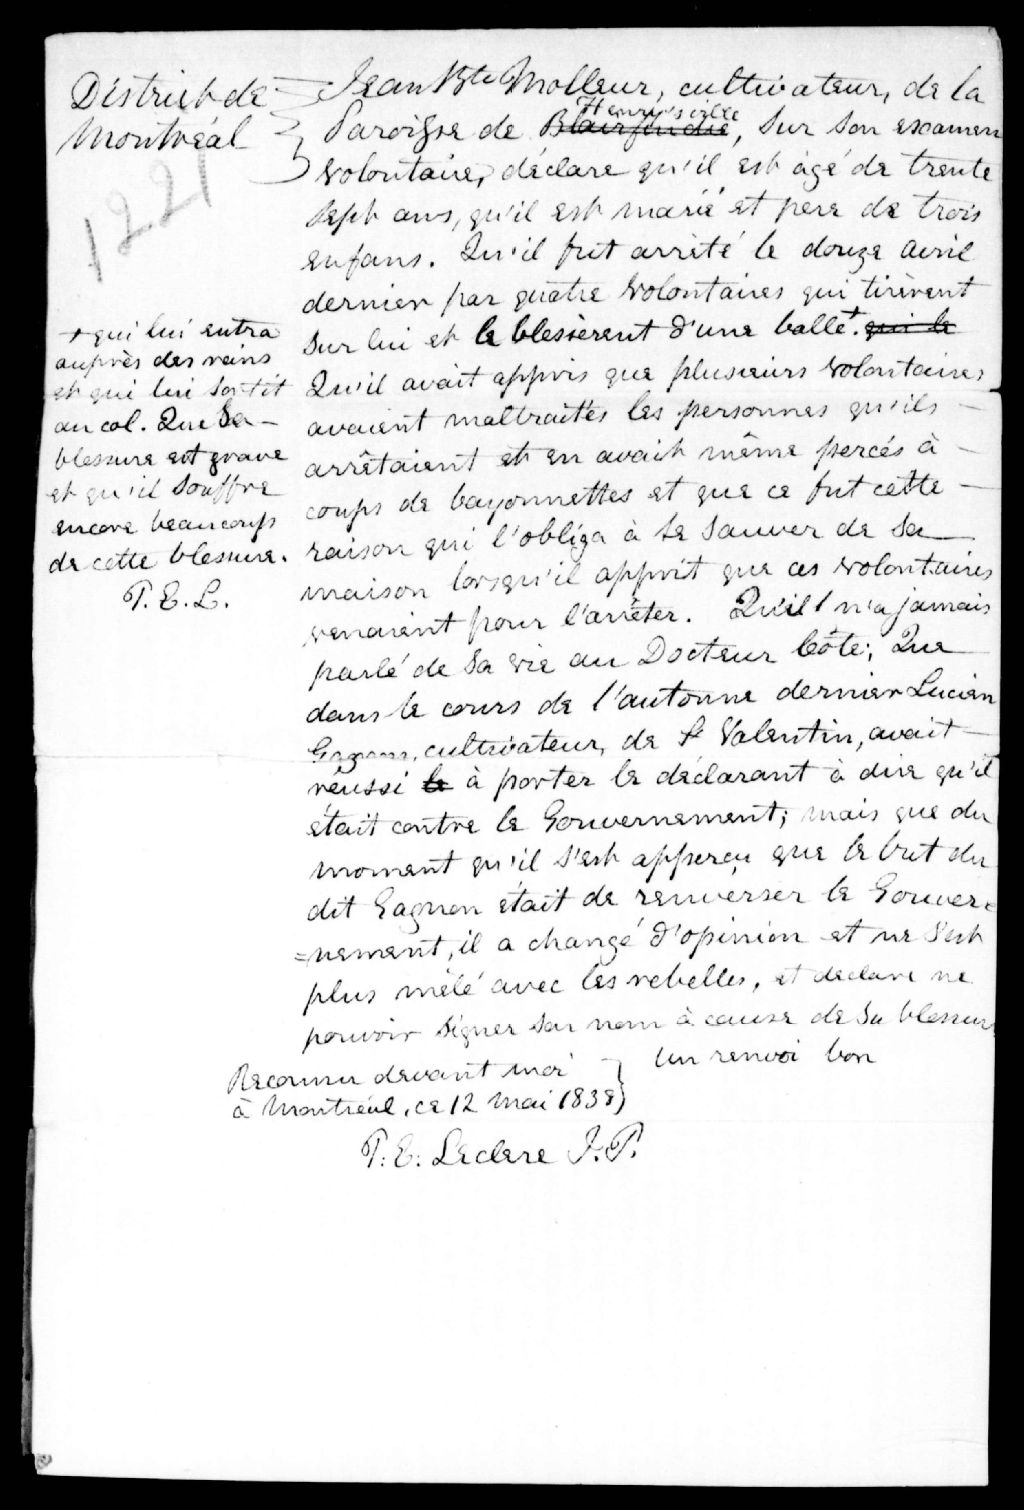 District de
Montréal
1221
Jean Bte Molleur, cultivateur, de la
Henrysville
Paroisse de Blairfindie, sur son examen
volontaire, déclare qu'il est âgé de trente
sept ans, qu'il est marié et pere de trois
enfans. Qu'il fut arrêté le douze avril
dernier par quatre volontaires qui tirèrent
sur lui et le blessèrent d'une balle+. qui le
Qu'il avait appris que plusieurs volontaires
avaient maltraités les personnes qu'ils
arrêtaient et en avait même percés à
coups de bayonnettes et que ce fut cette
raison qui l'obligea à se sauver de sa
maison lorsqu'il apprit que ces volontaires
venaient pour l'arrêter. Qu'il n'a jamais
parlé de sa vie au Docteur Côte; Que
dans le cours de l'automne dernier Lucien
Gagnon, cultivateur, de St Valentin, avait
réussi le à porter le déclarant à dire qu'il
était contre le Gouvernement; mais que du
moment qu'il s'est apperçu que le but du
dit Gagnon était de renverser le Gouver=
=nement, il a changé d'opinion et ne s'est
plus mêlé avec les rebelles, et declare ne
pouvoir signer son nom à cause de sa blessure
+ qui lui entra
auprès des reins
et qui lui sortit
au col. Que sa
blessure est grave
et qu'il souffre
encore beaucoup
de cette blessure.
P. E. L.
Un renvoi bon
Reconnu devant moi
à Montréal, ce 12 Mai 1838
P. E. Leclere J. P.